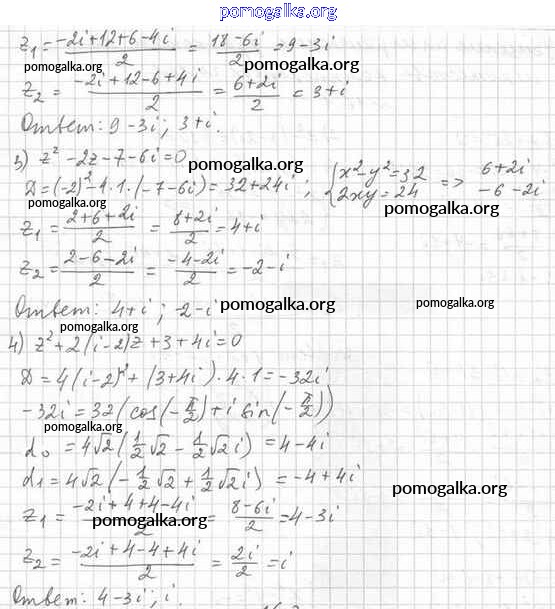 pomogalka.org
z₁ = (-2i+12+6-4i)/2 = (18-6i)/2 = 9-3i
pomogalka.org pomogalka.org
z₂ = (-2i+12-6+4i)/2 = (6+2i)/2 = 3+i
Ответ: 9-3i; 3+i.
3) z²-2z-7-6i=0 pomogalka.org
D=(-2)²-4·1·(-7-6i)=32+24i; {x²-y²=32 2xy=24 => 6+2i -6-2i
pomogalka.org pomogalka.org
z₁ = (2+6+2i)/2 = (8+2i)/2 = 4+i
z₂ = (2-6-2i)/2 = (-4-2i)/2 = -2-i
Ответ: 4+i; -2-i pomogalka.org pomogalka.org
pomogalka.org
4) z²+2(i-2)z+3+4i=0
D=4(i-2)²+(3+4i)·4·1=-32i
-32i=32(cos(-π/2)+i sin(-π/2))
pomogalka.org
d₀=4√2(1/2√2-1/2√2i)=4-4i
d₁=4√2(-1/2√2+1/2√2i)=-4+4i
pomogalka.org
z₁ = (-2i+4+4-4i)/2 = (8-6i)/2 = 4-3i
pomogalka.org
z₂ = (-2i+4-4+4i)/2 = 2i/2 = i
Ответ: 4-3i; i.